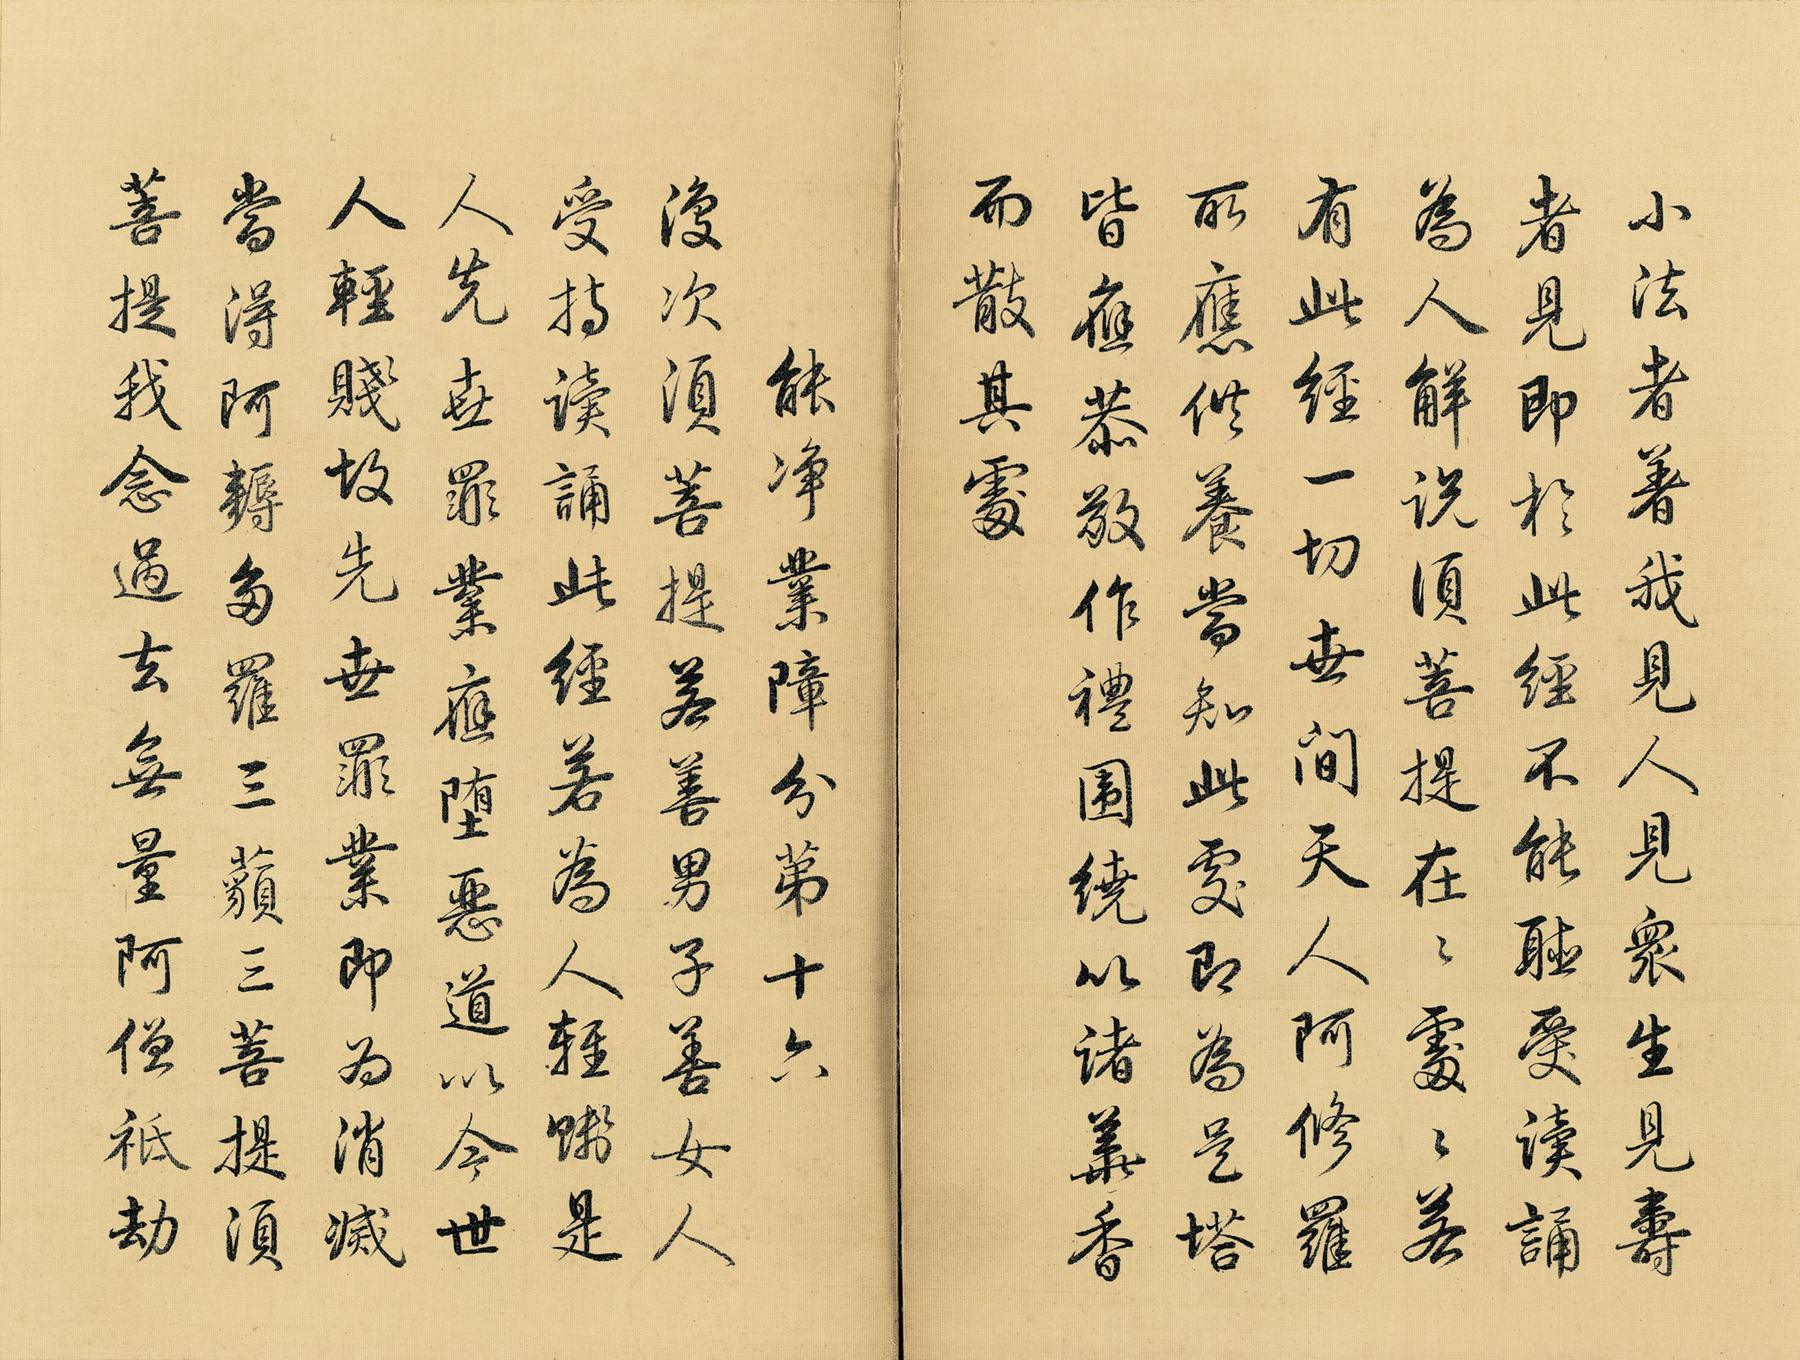 小法者著我見人見衆生見壽
者見即於此經不能聽受讀誦
為人解説須菩提在〻處〻若
有此經一切世間天人阿修羅
所應供養當知此處即為是塔
皆應恭敬作禮圍繞以諸華香
而散其處
能淨業障分第十六
復次須菩提若善男子善女人
受持读誦此經若為人輕賤是
人先世罪業應墮惡道以今世
人輕賤故先世罪業即为消滅
當得阿耨多羅三藐三菩提須
菩提我念過去無量阿僧祇劫